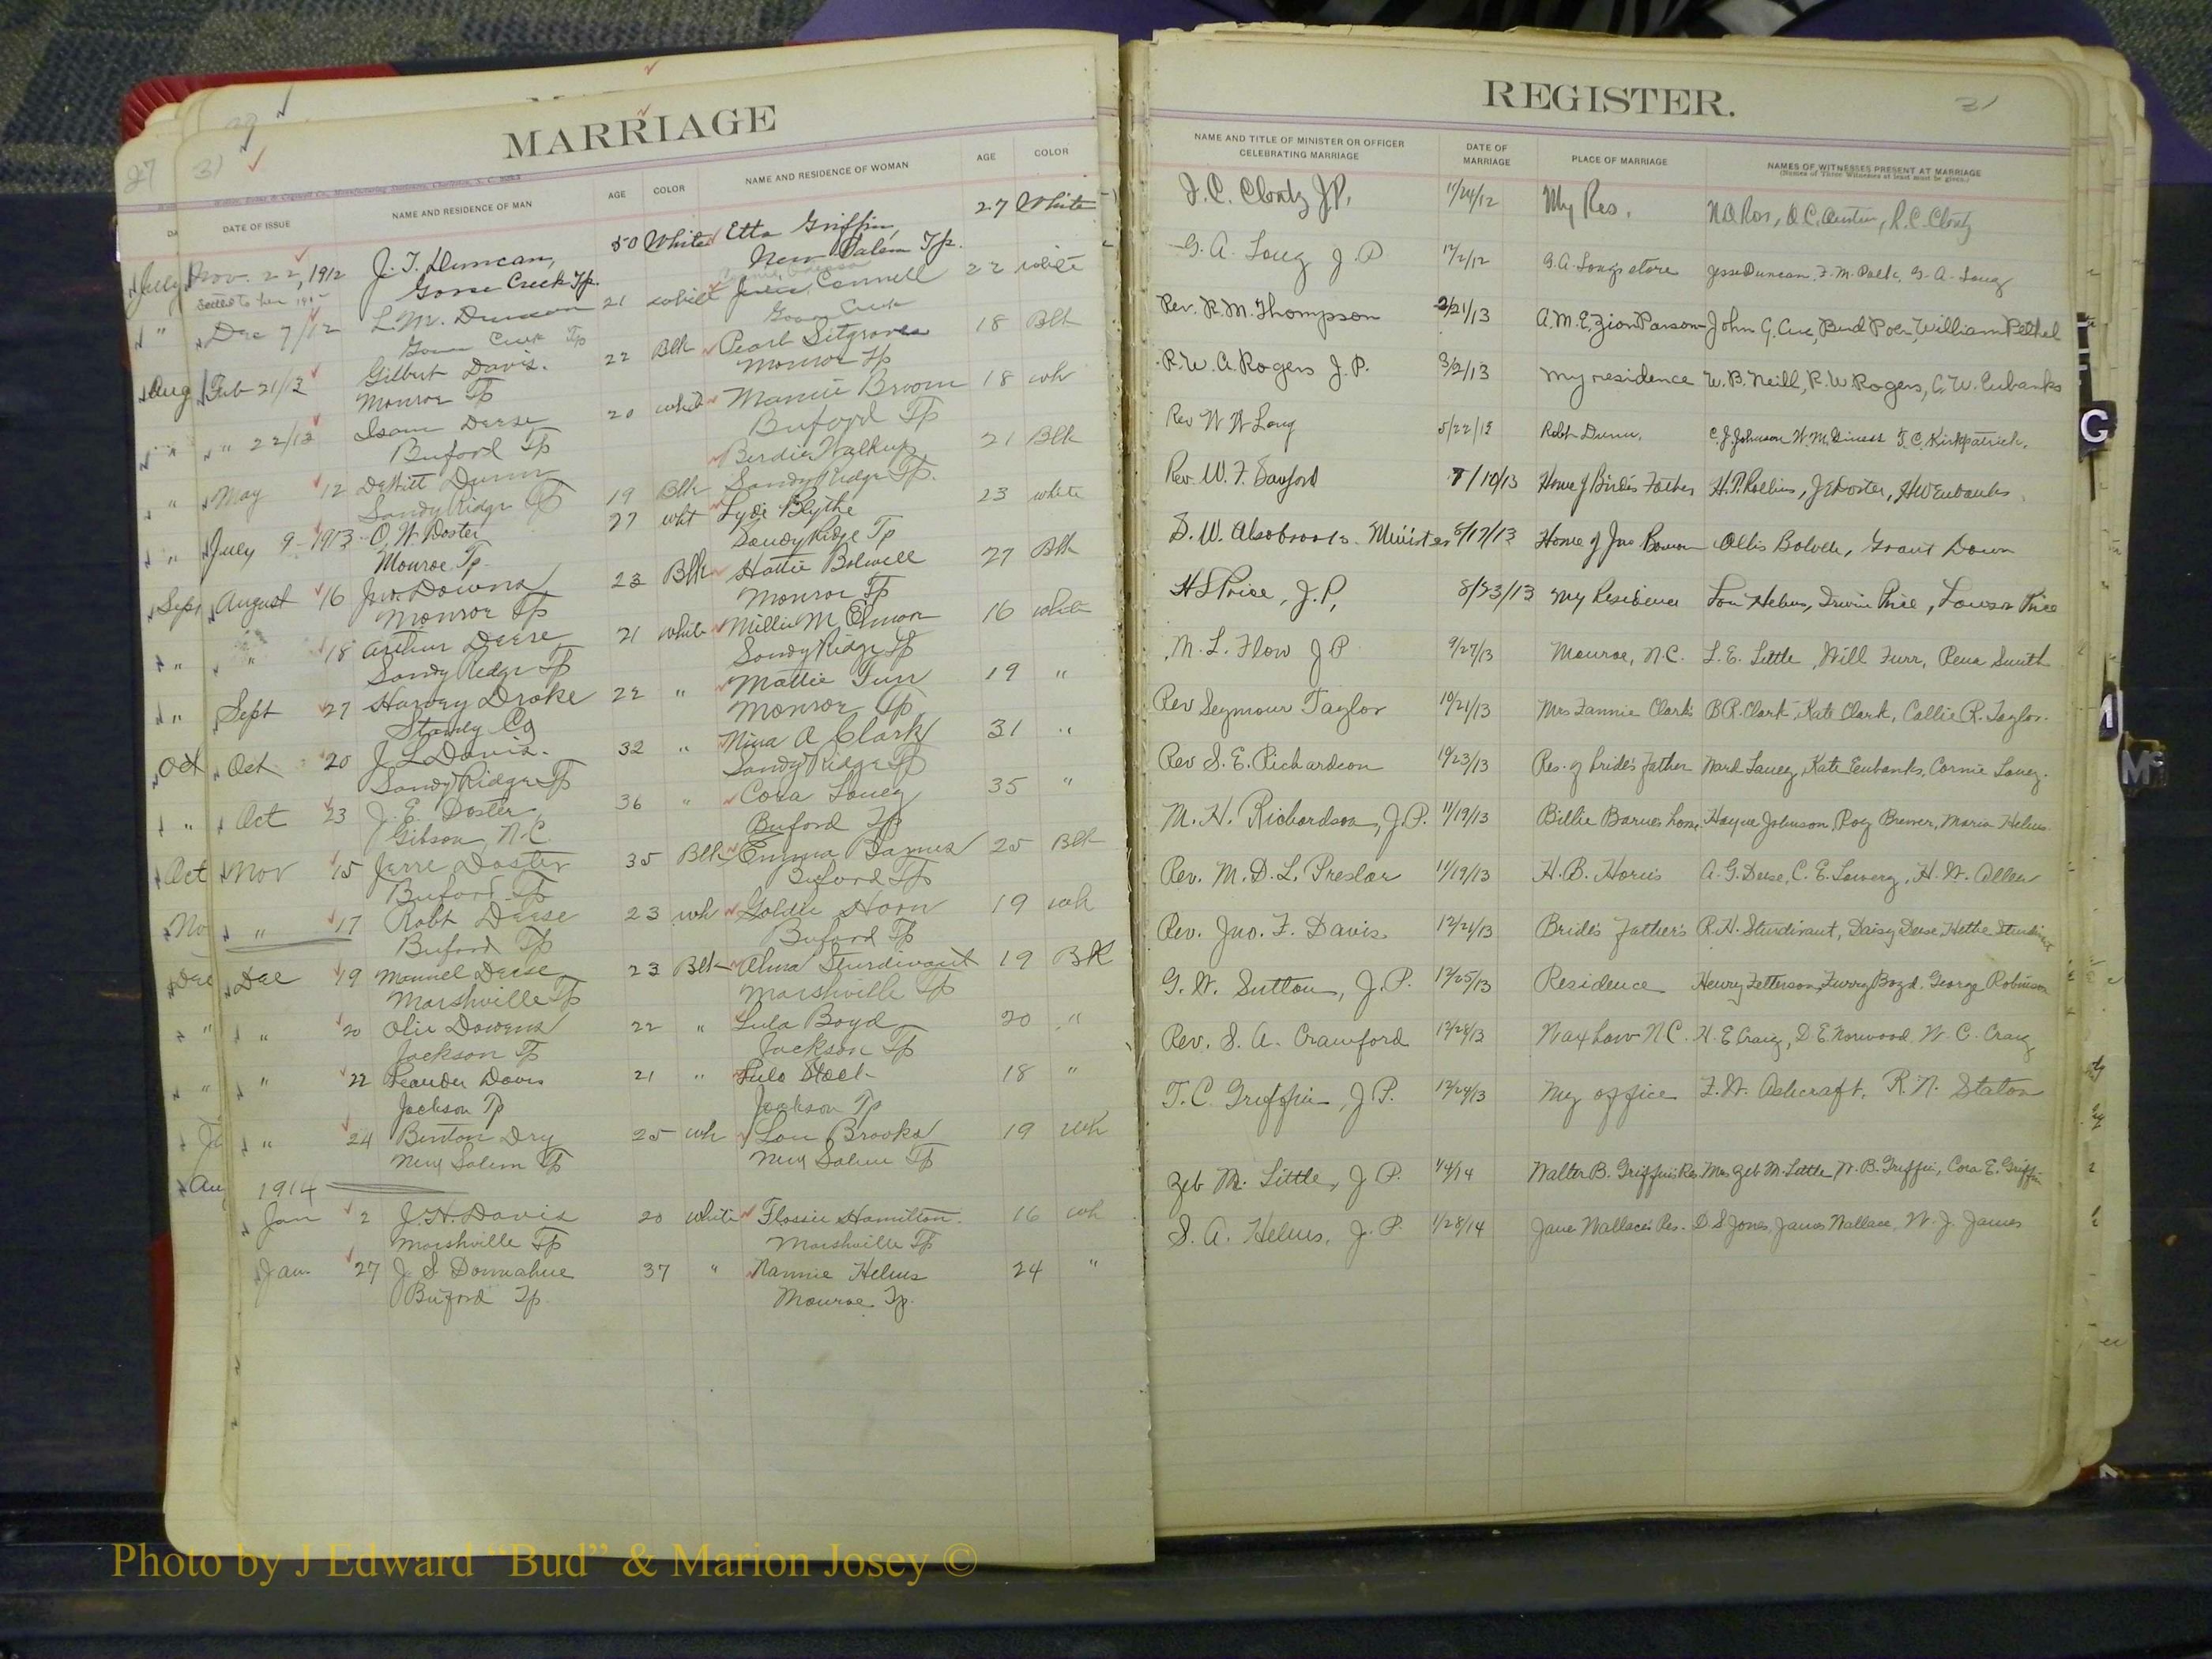 MARRIAGE
27
29
31
DATE OF ISSUE
NAME AND RESIDENCE OF MAN
AGE
COLOR
NAME AND RESIDENCE OF WOMAN
AGE
COLOR
Nov. 22, 1912 J. T. Duncan, 50 White Etta Griffin, 27 White
Goose Creek Tp. New Salem Tp.
Dec 7/12 L. M. Duncan 21 white Connell 22 white
Goose Creek Tp Goose Creek
Feb 21/13 Gilbert Davis. 22 Blk Pearl Sitgraves 18 Blk
Monroe Tp Monroe Tp
" 22/13 Isom Deese 20 white Mamie Broom 18 wh
Buford Tp Buford Tp
May 12 DeWitt Dunn 19 Blk Birdie Walkup 21 Blk
Sandy Ridge Tp Sandy Ridge Tp.
July 9-1913 O. W. Doster 27 wht Lyde Blythe 23 white
Monroe Tp. Sandy Ridge Tp
August 16 Jno. Downs 23 Blk Hattie Bolwell 27 Blk
Monroe Tp Monroe Tp
" 18 Arthur Deese 21 white Millie M Elmore 16 white
Sandy Ridge Tp Sandy Ridge Tp
Sept 27 Harvey Drake 22 " Mattie Furr 19 "
Stanly Co Monroe Tp
Oct 20 J L Davis. 32 " Nina A Clark 31 "
Sandy Ridge Tp Sandy Ridge Tp
Oct 23 J. E. Doster 36 " Cora Laney 35 "
Gibson, N.C. Buford Tp
Nov 15 Jerre Doster 35 Blk Emma Barnes 25 Blk
Buford Tp Buford Tp
" 17 Robt Deese 23 wh Goldie Horn 19 wh
Buford Tp Buford Tp
Dec 19 Manuel Deese 23 Blk Alma Sturdivant 19 BK
Marshville Tp Marshville Tp
" 20 Olie Dowens 22 " Lula Boyd 20 "
Jackson Tp Jackson Tp
" 22 Leander Davis 21 " Lula 18 "
Jackson Tp Jackson Tp
" 24 Benton Dry 25 wh Lou Brooks 19 wh
New Salem Tp New Salem Tp
1914
Jan 2 J. H. Davis 20 white Flossie Hamilton. 16 wh
Marshville Tp Marshville Tp
Jan. 27 J. S. Donnahue 37 " Nannie Helms 24 "
Buford Tp. Monroe Tp.
REGISTER.
31
NAME AND TITLE OF MINISTER OR OFFICER
CELEBRATING MARRIAGE
DATE OF
MARRIAGE
PLACE OF MARRIAGE
NAMES OF WITNESSES PRESENT AT MARRIAGE
(Names of Three Witnesses at least must be given.)
J. C. Clontz J.P. 11/24/12 My Res. O. C. Austin, R. C. Clontz
G. A. Long J. P 12/2/12 G. A. Longs store Jesse Duncan, F. M. Polk, G. A. Long
Rev. R. M. Thompson 2/21/13 A. M. E. Zion Parson John G. William Pethel
R. W. A. Rogers J. P. 3/2/13 my residence W. B. Neill, R. W Rogers, C. W. Eubanks
Rev W W Long 5/22/13 Robt Dunn. C. J. Johnson T. C. Kirkpatrick.
Rev. W. F. Sanford 7/10/13 Home of Bride's Father H. P. Rollins, J E Doster, H W Eubanks
S. W. Alsobrooks Minister 8/17/13 Home of Jno Ollis Grant Down
H S Price, J. P. 8/23/13 My Residence Helms, Irwin Price, Price
M. L. Flow J P 9/27/13 Monroe, N.C. L. E. Little, Will Furr, Rena Smith
Rev Seymour Taylor 10/21/13 Mrs Fannie Clark's B R. Clark, Kate Clark, Callie R. Taylor.
Rev S. E. Richardson 10/23/13 Res. of bride's father Ward Laney, Kate Eubanks, Connie Laney.
M. H. Richardson, J. P. 11/19/13 Billie Barnes home. Hayne Johnson, Roy Brewer, Maria Helms
Rev. M. D. L. Preslar 11/19/13 H. B. Horn's A. G. Deese, C. E. Lowery, H. W. Allen
Rev. Jno. F. Davis 12/21/13 Bride's Father's R. H. Sturdivant, Daisy Deese, Hettie Sturdivant
G. W. Sutton, J. P. 12/25/13 Residence Henry Fetterson, Furry Boyd, George Robinson
Rev. S. A. Crawford 12/28/13 Waxhaw N C. H. E Craig, D. E. Norwood, W. C. Craig
T. C. Griffin, J P. 12/24/13 My office F. W. Ashcraft, R. N. Staton
Zeb M. Little, J P. 1/4/14 Walter B. Griffin's Res. Mrs Zeb M. Little, W. B. Griffin, Cora E. Griffin
S. A. Helms, J. P. 1/28/14 Jane Wallace's Res. D. S Jones, James Wallace, W. J. James
G
M
Mc
Photo by J Edward “Bud” & Marion Josey ©